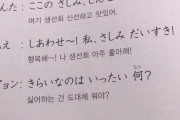 んた：ここの さしみ、し
여기 생선회 신선하고 맛있어.
え：しあわせ〜! 私、さしみ だいすき!
행복해~! 나 생선회 아주 좋아해!
ジョン：きらいなのは いったい 何?
なに
싫어하는 건 도대체 뭐야?